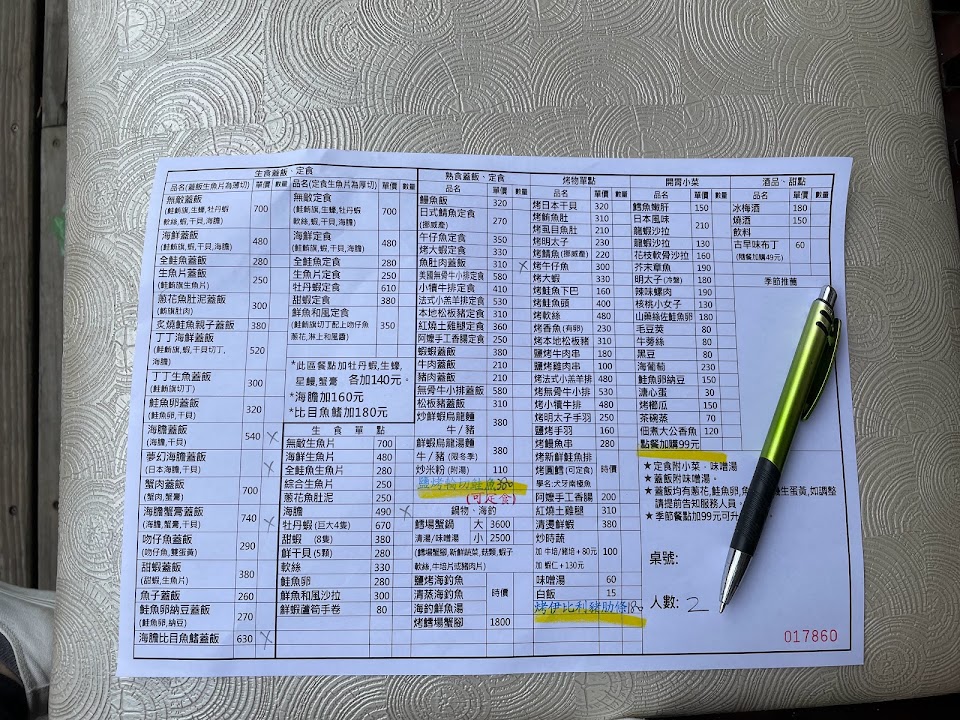 生食蓋飯、定食
品名(蓋飯生魚片為薄切) 單價 數量 品名(定食生魚片為厚切) 單價 數量
無敵蓋飯 700 無敵定食 700
(鮭鮪旗,生蠔,牡丹蝦 (鮭鮪旗,生蠔,牡丹蝦
軟絲,蝦,干貝,海膽) 軟絲,蝦,干貝,海膽)
海鮮蓋飯 480 海鮮定食 480
(鮭鮪旗,蝦,干貝,海膽) (鮭鮪旗,蝦,干貝,海膽)
全鮭蓋飯 280 全鮭魚定食 280
生魚片蓋飯 250 生魚片定食 250
(鮭鮪旗生魚片) 牡丹蝦定食 610
蔥花魚肚泥蓋飯 300 甜蝦定食 380
(鮪旗肚肉) 鮮魚和風定食 350
炙燒鮭魚親子蓋飯 380 (鮭鮪旗切丁配上吻仔魚
蔥花,淋上和風醬)
丁丁海鮮蓋飯 520
(鮭鮪旗,蝦,干貝切丁,
海膽)
丁丁生魚蓋飯 300
(鮭鮪旗切丁)
鮭魚卵蓋飯 320
(鮭魚卵,干貝)
海膽蓋飯 540 X
(海膽,干貝)
夢幻海膽蓋飯 X
(日本海膽)
蟹肉蓋飯 500
(蟹肉,蟹膏)
海膽蟹膏蓋飯 740 X
(海膽,蟹膏,干貝)
吻仔魚蓋飯 290
(吻仔魚,雙蛋黃)
甜蝦蓋飯 380
(甜蝦,生魚片)
魚子蓋飯 260
鮭魚卵納豆蓋飯 270
(鮭魚卵,納豆)
海膽比目魚鰭蓋飯 630 X
*此區餐點加牡丹蝦,生蠔,
星鰻,蟹膏 各加140元。
*海膽加160元
*比目魚鰭加180元
生食單點
無敵生魚片 700
海鮮生魚片 480
全鮭魚生魚片 280
綜合生魚片 250
蔥花魚肚泥 250
海膽 490 X
牡丹蝦(巨大4隻) 670
甜蝦 (8隻) 380
鮮干貝(5顆) 280
軟絲 330
鮭魚卵 280
鮮魚和風沙拉 300
鮮蝦蘆筍手卷 80
熟食蓋飯、定食
品名 單價 數量
鰻魚飯 320
日式鯖魚定食 270
(挪威產)
午仔魚定食 350
烤大蝦定食 330
魚肚肉蓋飯 310 X
美國無骨牛小排定食 580
小犢牛排定食 410
法式小羔羊排定食 530
本地松板豬定食 310
紅燒土雞腿定食 360
阿嬤手工香腸定食 250
蝦蝦蓋飯 380
牛肉蓋飯 210
豬肉蓋飯 210
無骨牛小排蓋飯 580
松板豬蓋飯 310
炒鮮蝦烏龍麵 380
牛/豬
鮮蝦烏龍湯麵 380
牛/豬(限冬季)
炒米粉(附湯) 110
鹽烤輪切鮭魚380
(可定食)
鍋物、海釣
鱈場蟹鍋 大 3600
清湯/味噌湯 小 2500
(鱈場蟹腳,新鮮蔬菜,菇類,蝦子
軟絲,牛培片或豬肉片)
鹽烤海釣魚 時價
清蒸海釣魚
海釣鮮魚湯
烤鱈場蟹腳 1800
烤物單點
品名 單價 數量
烤日本干貝 320
烤鮪魚肚 310
烤虱目魚肚 210
烤明太子 230
烤鯖魚(挪威產) 220
烤午仔魚 300
烤大蝦 330
烤鮭魚下巴 160
烤鮭魚頭 400
烤軟絲 480
烤香魚(有卵) 230
烤本地松板豬 310
鹽烤牛肉串 180
鹽烤雞肉串 100
烤法式小羔羊排 480
烤無骨牛小排 530
烤小犢牛排 480
烤明太子手羽 250
鹽烤手羽 160
烤鰻魚串 280
烤新鮮鮭魚排 時價
烤圓鱈(可定食)
學名:犬牙南極魚
阿嬤手工香腸 200
紅燒土雞腿 310
清燙鮮蝦 380
炒時蔬 100
加 牛培/豬培+80元
加 蝦仁+130元
味噌湯 60
白飯 15
烤伊比利豬肋條180
開胃小菜
品名 單價 數量
鱈魚嫩肝 150
日本風味 210
龍蝦沙拉
龍蝦沙拉 130
花枝軟骨沙拉 160
芥末章魚 190
明太子(冷盤) 180
辣味螺肉 190
核桃小女子 130
山藥絲佐鮭魚卵 180
毛豆莢 80
牛蒡絲 80
黑豆 80
海葡萄 230
鮭魚卵納豆 150
溏心蛋 30
烤櫛瓜 150
茶碗蒸 70
佃煮大公香魚 120
點餐加購99元
酒品、甜點
品名 單價 數量
冰梅酒 180
燒酒 150
飲料
古早味布丁 60
(隨餐加購49元)
季節推薦
★定食附小菜,味噌湯
★蓋飯附味噌湯。
★蓋飯均有蔥花,鮭魚卵,魚 生蛋黃,如調整
請提前告知服務人員
★季節餐點加99元可升
桌號:
人數: 2
017860